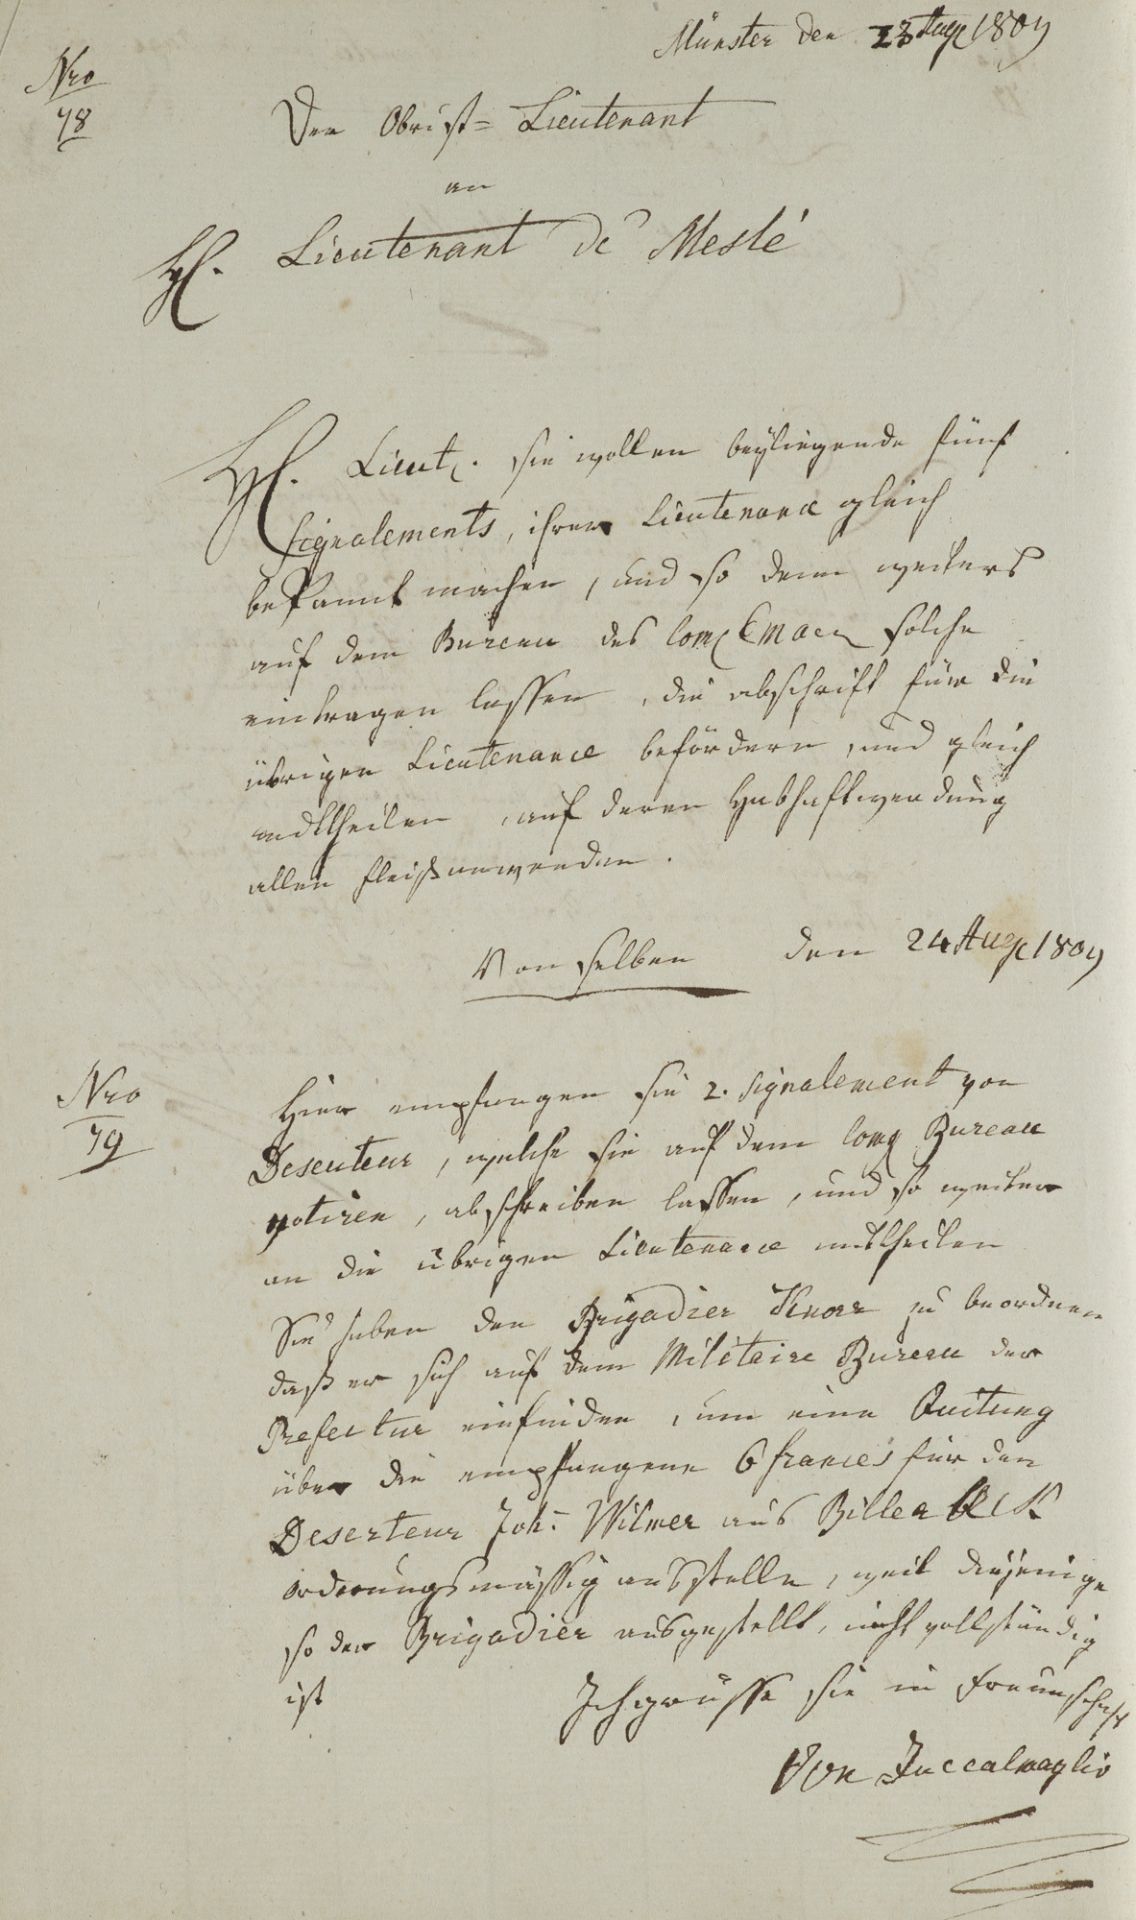 Münster den 23 Aug 1809
Nro
78
Der Obrist=Lieutenant
an
H. Lieutenant de Meslé
H. Lieut. sie wollen beyliegende fünf
signalements, ihrer Lieutenance gleich
bekannt machen, und so dann weiters
auf dem Bureau des solche
eintragen lassen, die abschrift für die
übrigen Lieutenance befördern, und gleich
mittheilen, auf deren Habhaftwerdung
allen fleiß anwenden.
Von selben den 24 Aug 1809
Nro
79
Hier empfangen sie 2. signalement von
Deserteur, welche sie auf dem Bureau
notiren, abschreiben lassen, und so weiter
an die übrigen Lieutenance mittheilen
Sie haben den Brigadier Knorr zu beordnen
daß er sich auf dem Militaire Bureau der
Prefectur einfinden, um eine Quitung
über die empfangene 6 francs für den
Deserteur Joh: Wilmer aus Billerbeck
orderungsmässig ausstelle, weil diejenige
so der Brigadier ausgestellt, nicht vollständig
ist Ich grüsse sie in Freunschaft
Von Zuccalmaglio